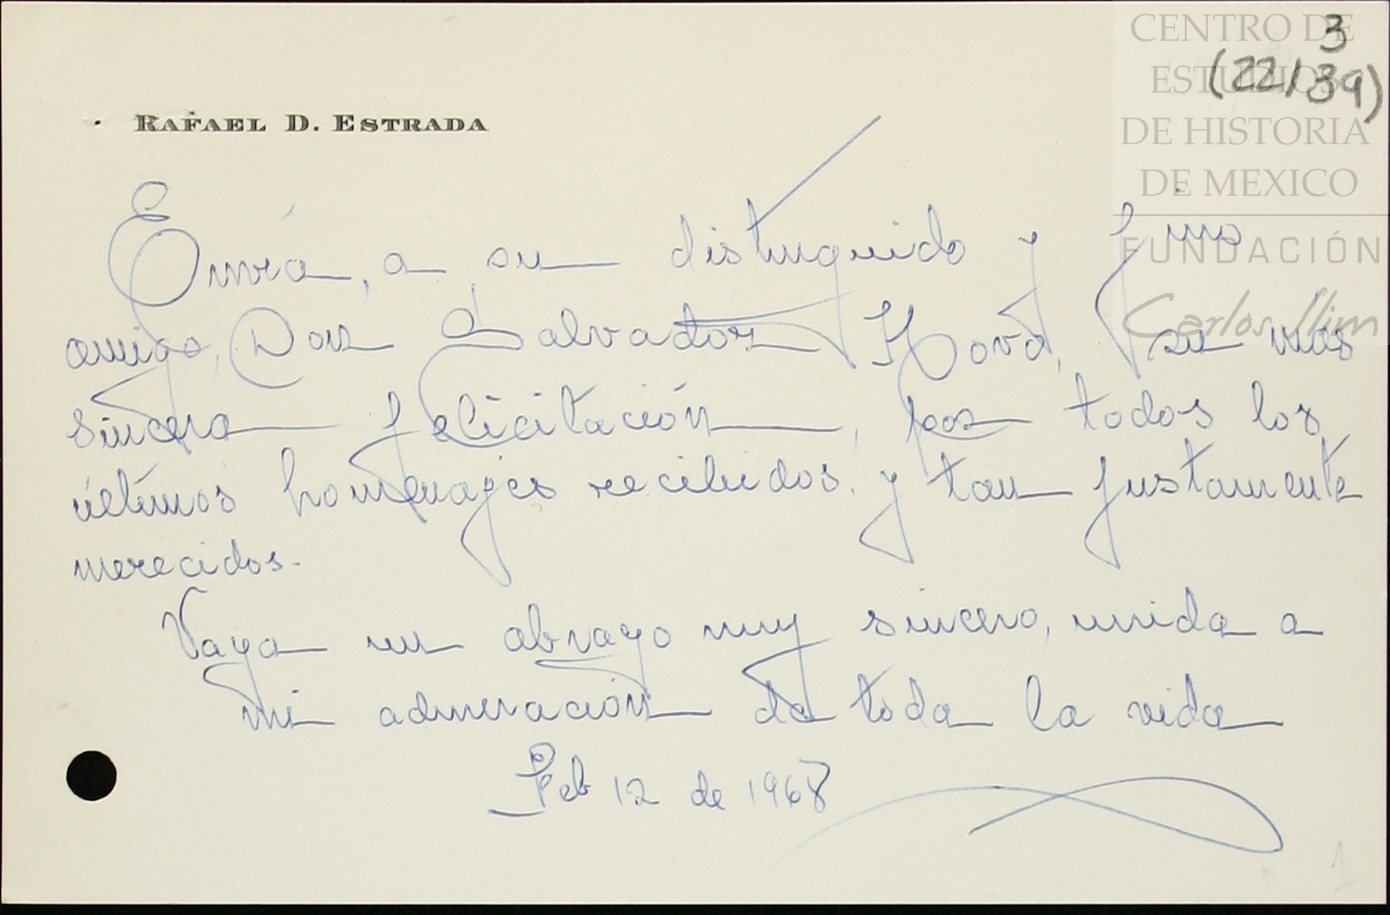 3
(22/39)
CENTRO DE
ESTUDIOS
DE HISTORIA
DE MEXICO
FUNDACIÓN
Carlos Slim
RAFAEL D. ESTRADA
Envía, a su distinguido y fino
amigo, Don Salvador Novo, su más
sincera felicitación, por todos los
últimos homenajes recibidos, y tan justamente
merecidos.
Vaya un abrazo muy sincero, unido a
mi admiración de toda la vida
Feb 12 de 1968
1